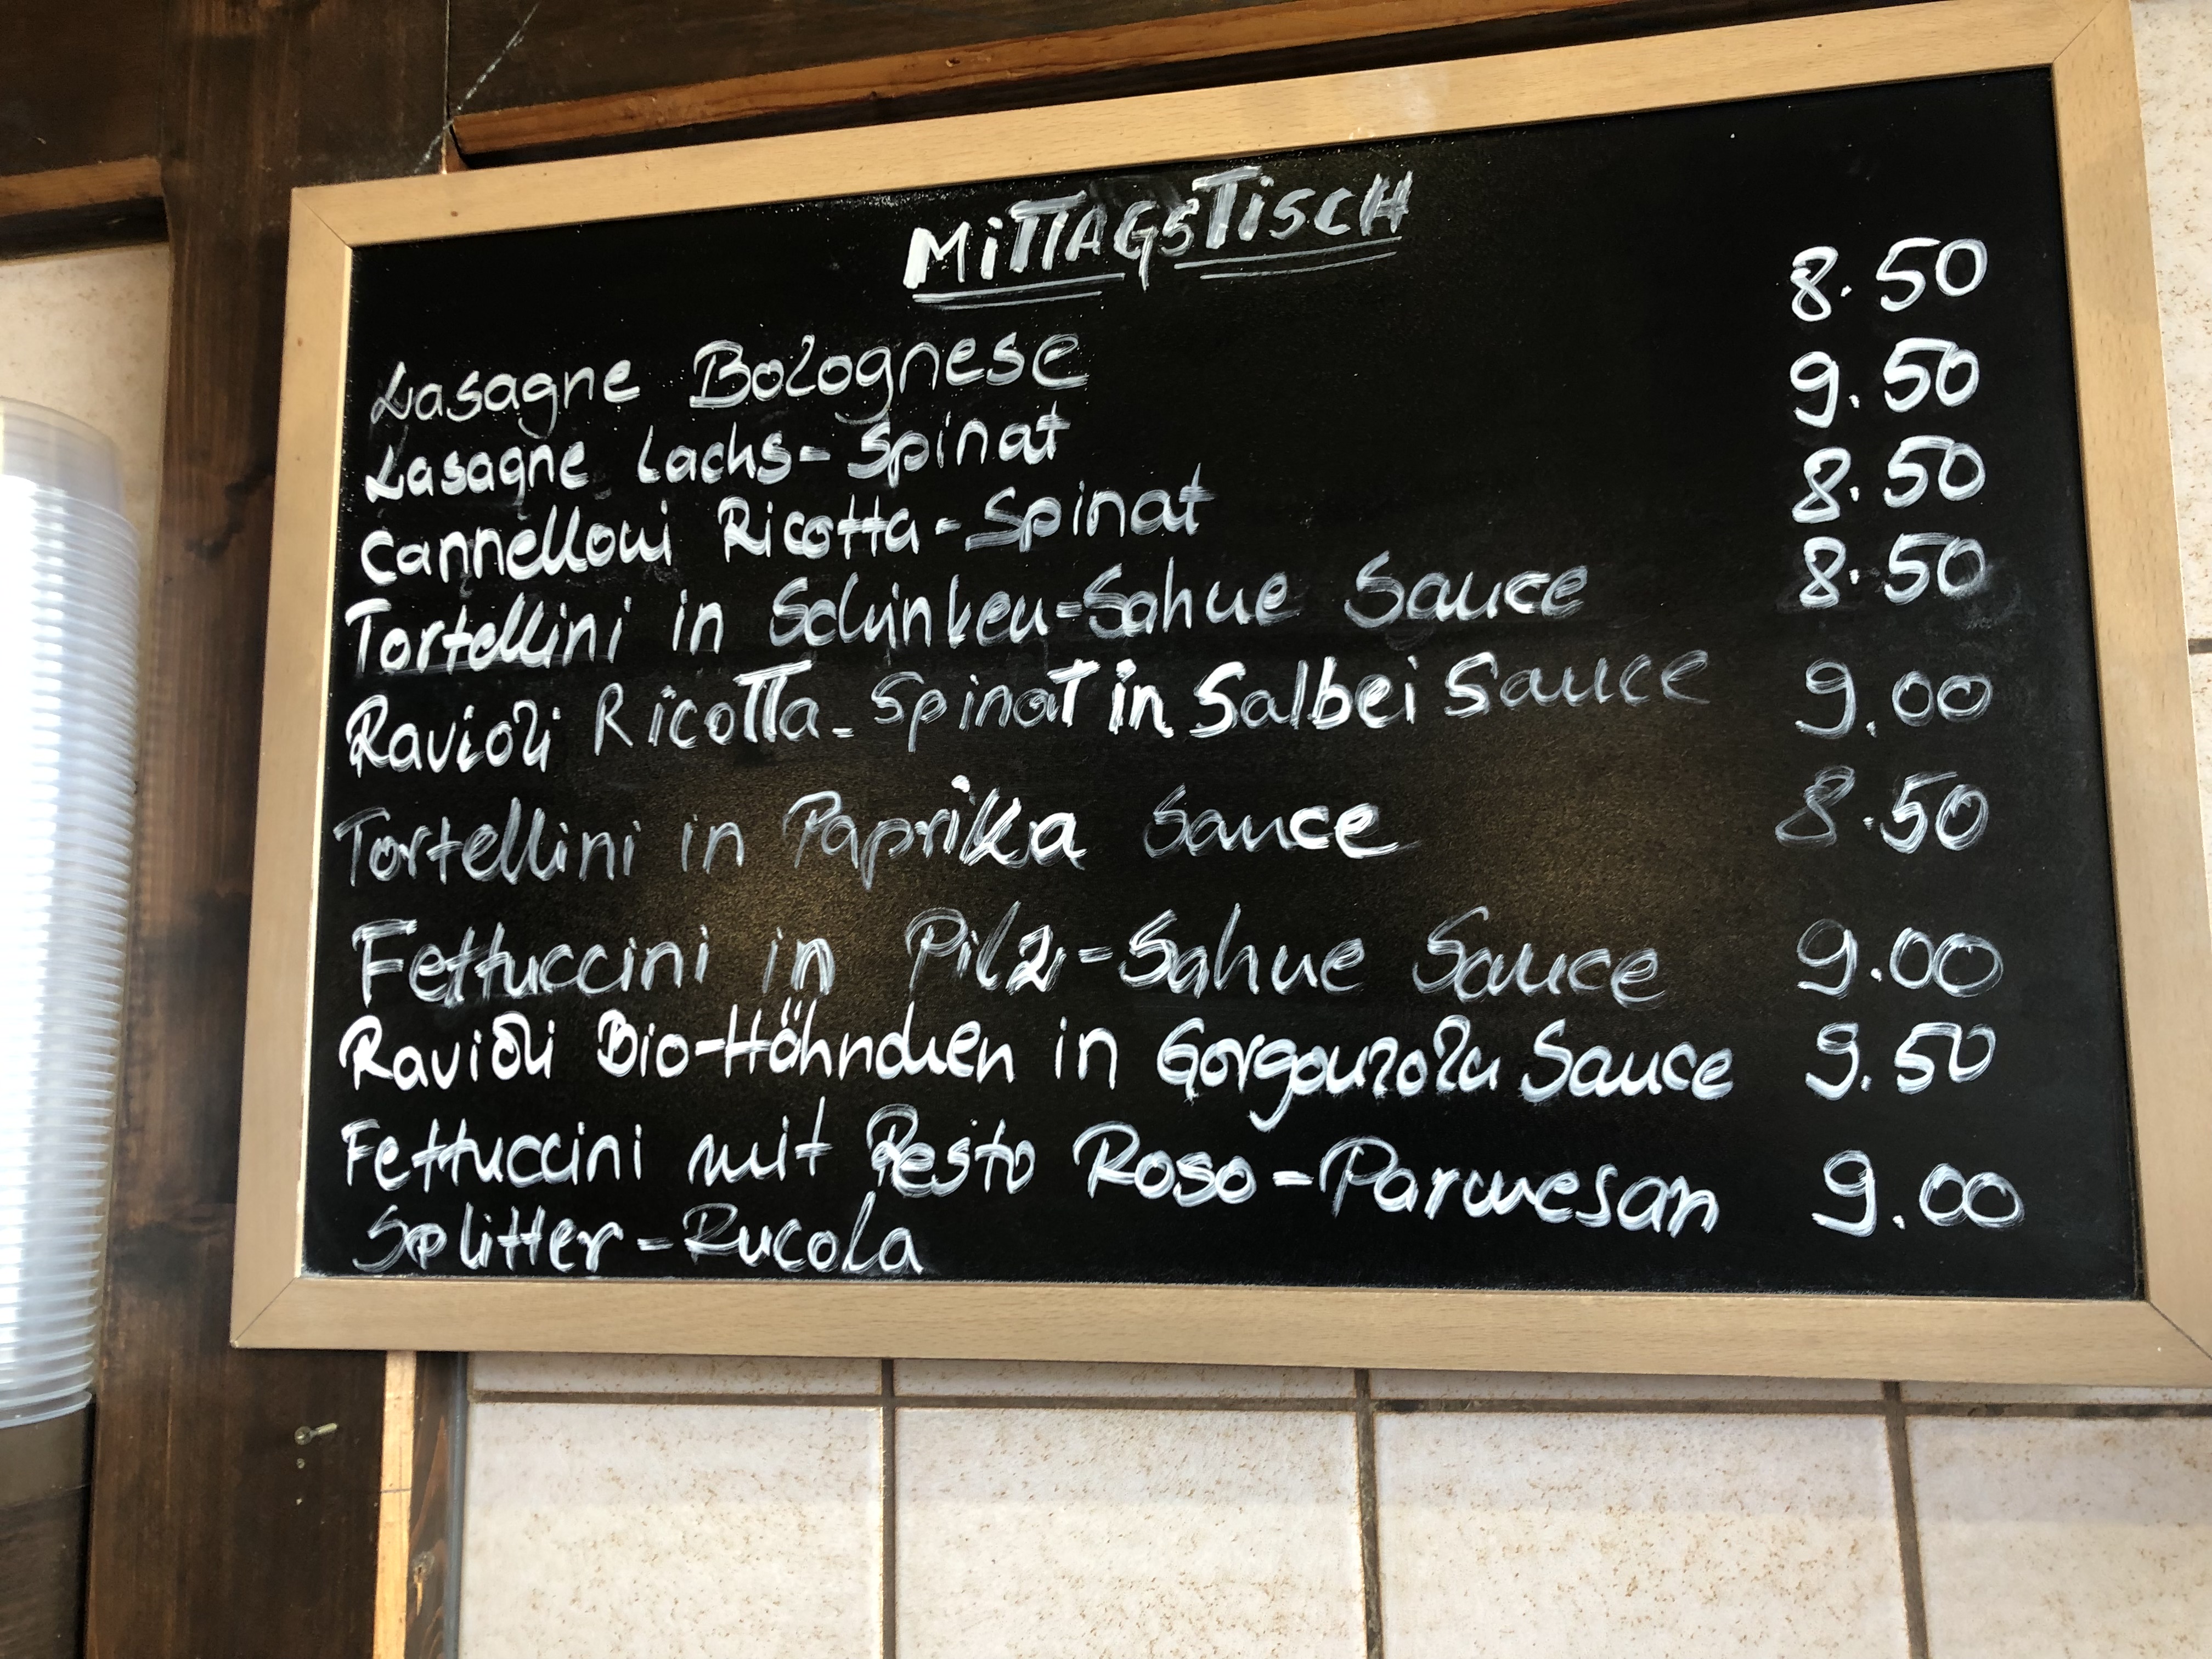 MiTTAGSTiSCH
Lasagne Bolognese 8.50
Lasagne Lachs-Spinat 9.50
Cannelloni Ricotta-Spinat 8.50
Tortellini in Schinken-Sahne Sauce 8.50
Ravioli Ricotta-Spinat in Salbei Sauce 9.00
Tortellini in Paprika Sauce 8.50
Fettuccini in Pilz-Sahne Sauce 9.00
Ravioli Bio-Hähnchen in Gorgonzola Sauce 9.50
Fettuccini mit Pesto Roso-Parmesan 9.00
Splitter-Rucola